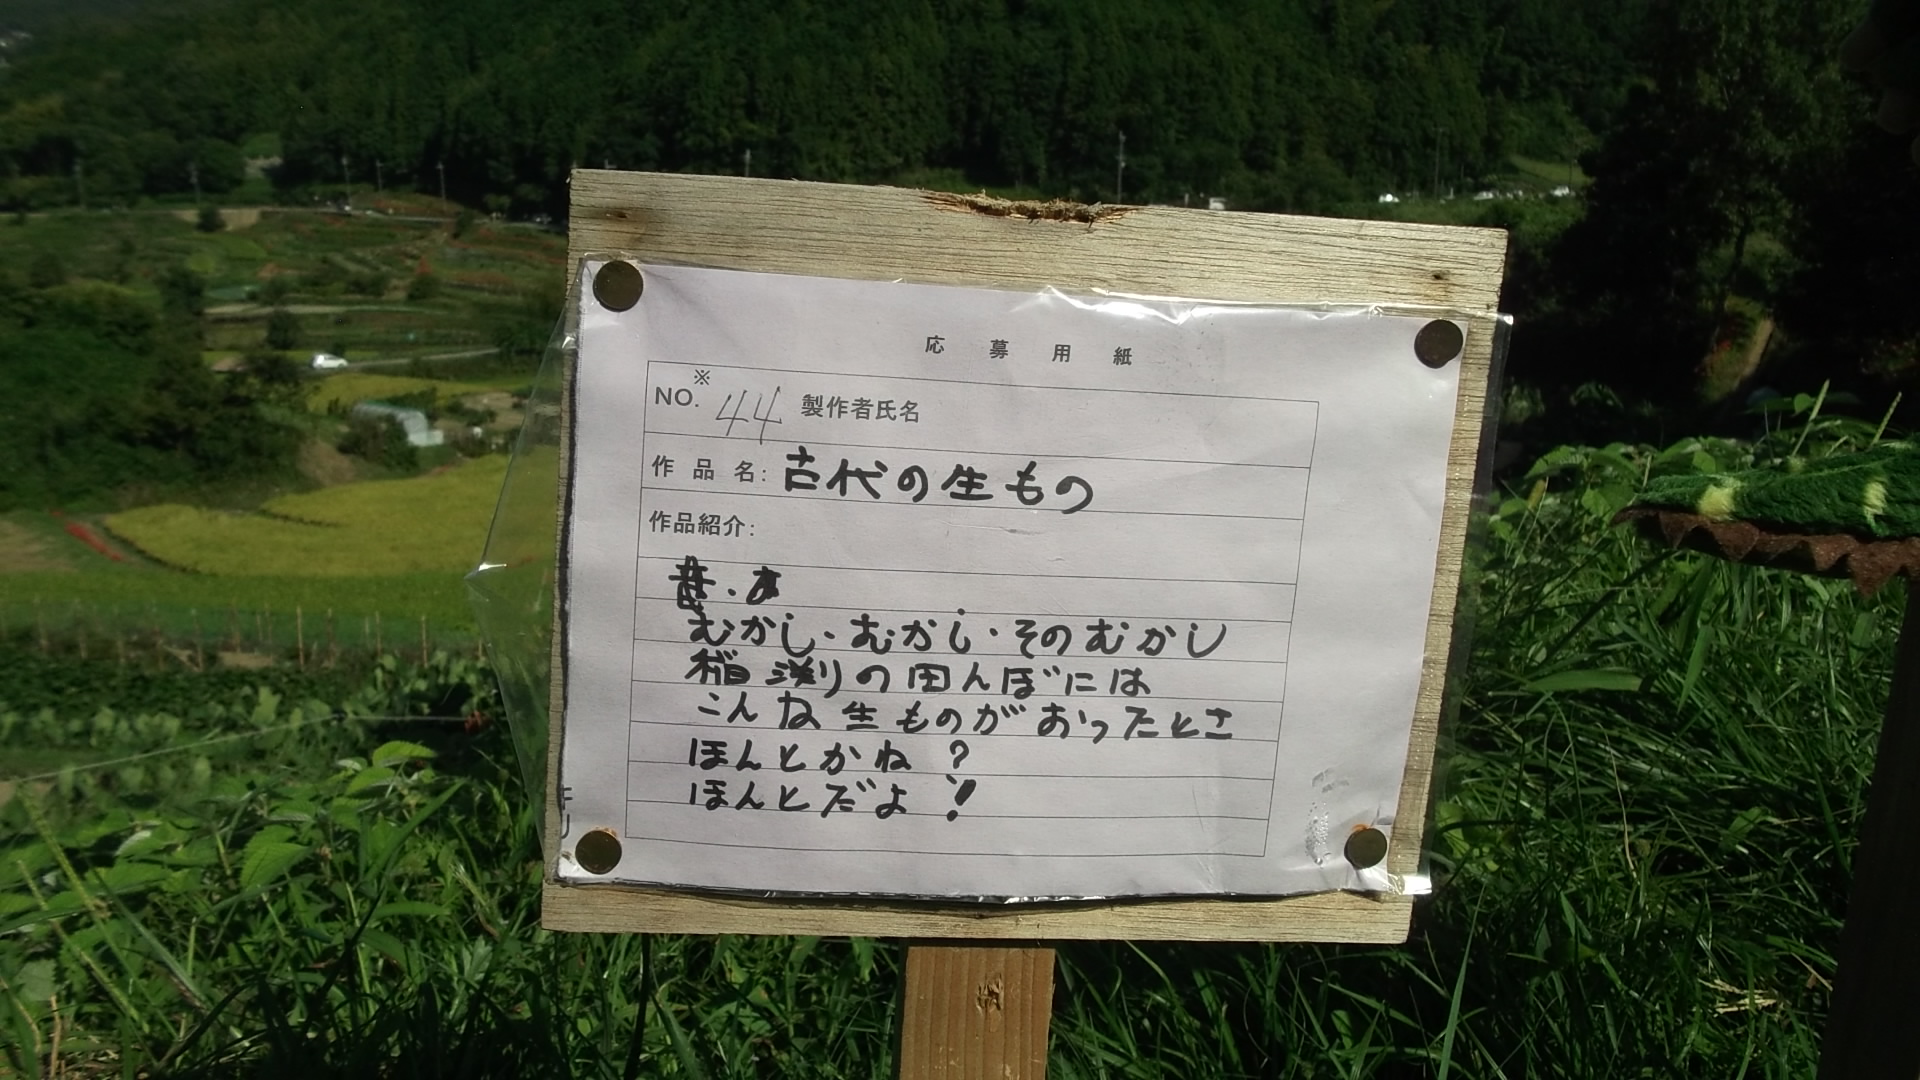 応募用紙
NO.※ 44 製作者氏名
作品名: 古代の生もの
作品紹介:
昔.あ
むかし、むかし・そのむかし
稲渕の田んぼには
こんな生ものがおったとさ
ほんとかね?
ほんとだよ!
キリ